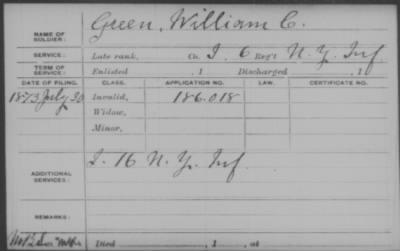 NAME OF SOLDIER: Green, William C.
SERVICE: Late rank, Co. I, 6 Reg't N. Y. Inf
TERM OF SERVICE: Enlisted , 1 Discharged , 1
DATE OF FILING. CLASS. APPLICATION NO. LAW. CERTIFICATE NO.
1873 July 30 Invalid, 186.018
Widow,
Minor,
ADDITIONAL SERVICES: I. 16 N. Y. Inf
REMARKS:
Died , 1 , at